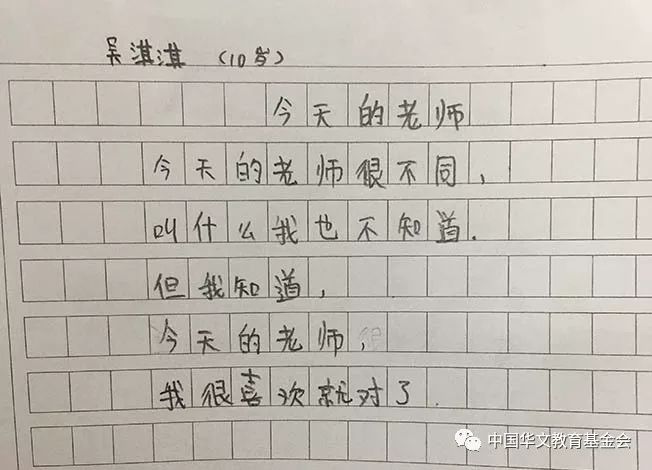 吴淇淇 (10岁)
今天的老师
今天的老师很不同,
叫什么我也不知道.
但我知道,
今天的老师,
我很喜欢就对了.
中国华文教育基金会